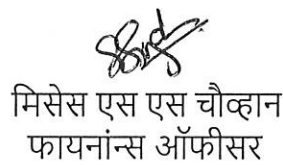 मिसेस एस एस चौव्हान
फायनांन्स ऑफीसर